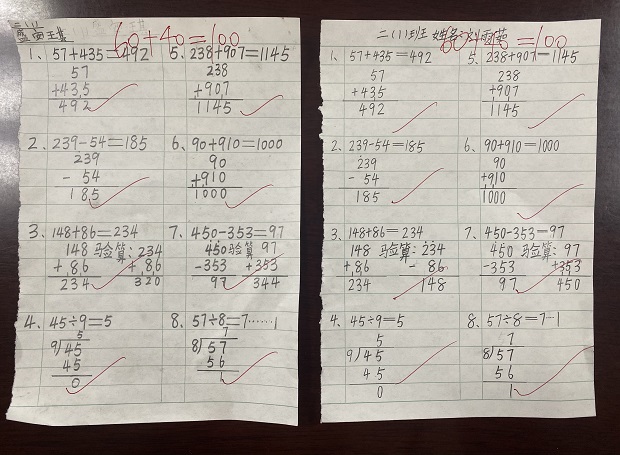 60+40=100
1、57+435=492 5、238+907=1145
57 238
+435 +907
492 1145
2、239-54=185 6、90+910=1000
239 90
- 54 +910
185 1000
3、148+86=234 7、450-353=97
148 验算：234 450 验算 97
+86 +86 -353 +353
234 320 97 344
4、45÷9=5 8、57÷8=7……1
5 7
9)45 8)57
45 56
0 1
二(1)班 姓名
=100
1、57+435=492 5、238+907=1145
57 238
+435 +907
492 1145
2、239-54=185 6、90+910=1000
239 90
- 54 +910
185 1000
3、148+86=234 7、450-353=97
148 验算：234 450 验算：97
+86 - 86 -353 +353
234 148 97 450
4、45÷9=5 8、57÷8=7…1
5 7
9)45 8)57
45 56
0 1